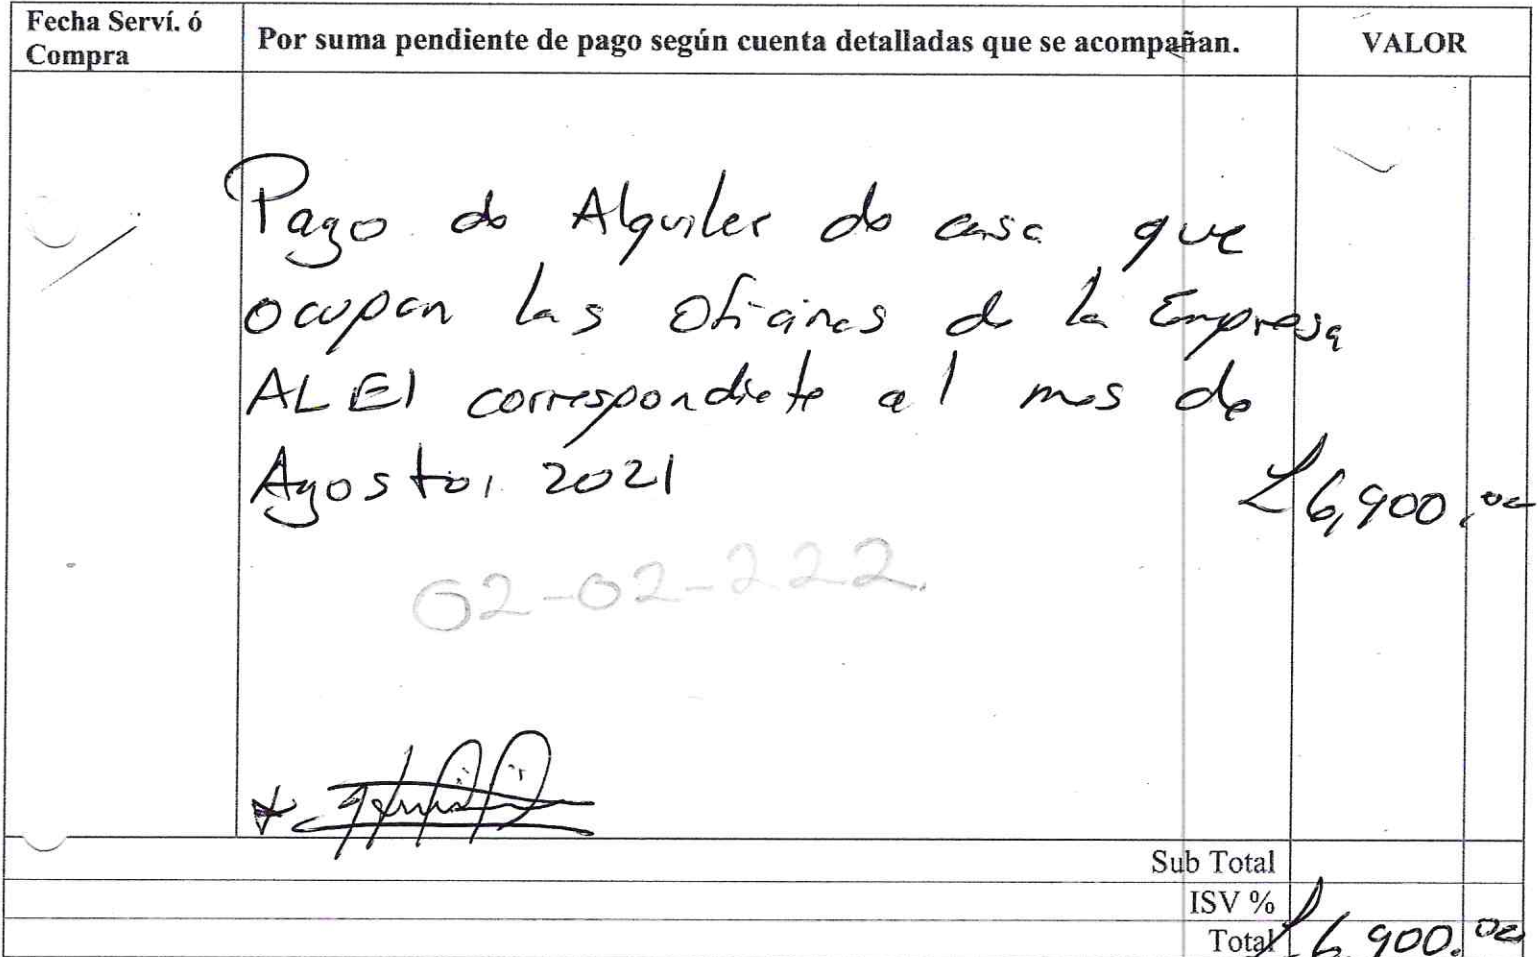 Fecha Serví. ó
Compra
Por suma pendiente de pago según cuenta detalladas que se acompañan.
VALOR
Pago de Alquiler de casa que
ocupan las oficinas de la Empresa
ALEI correspondiete al mes de
Agosto, 2021
L 6,900.00
02-02-222
Sub Total
ISV %
Total L 6,900.00